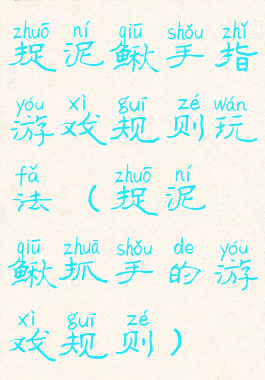 zhuō ní qiū shǒu zhǐ
捉泥鳅手指
yóu xì guī zé wán
游戏规则玩
fǎ zhuō ní
法（捉泥
qiū zhuā shǒu de yóu
鳅抓手的游
xì guī zé
戏规则）